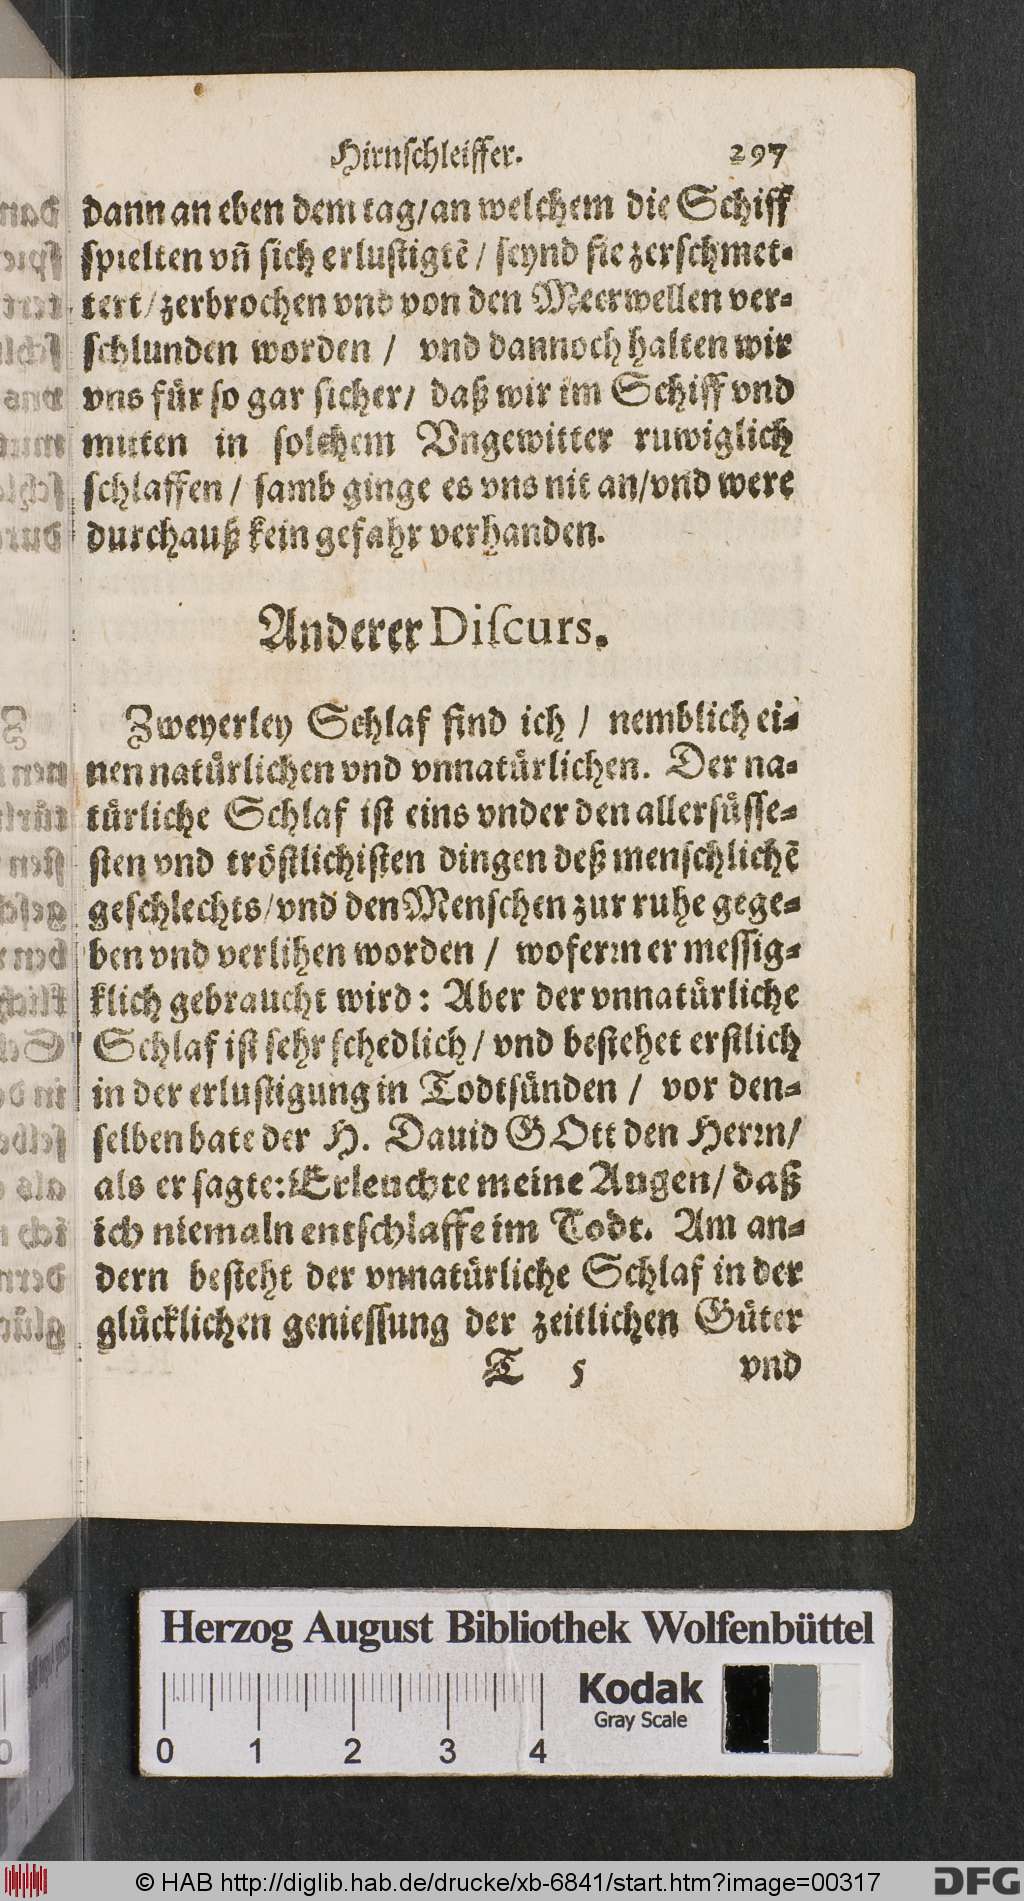 Hirnſchleiffer. 297
dann an eben dem tag/an welchem die Schiff
ſpielten vñ ſich erluſtigtē / ſeynd ſie zerſchmet-
tert/zerbrochen vnd von den Meerwellen ver-
ſchlunden worden / vnd dannoch halten wir
vns fuͤr ſo gar ſicher/ daß wir im Schiff vnd
mitten in ſolchem Vngewitter ruwiglich
ſchlaffen / ſamb ginge es vns nit an/vnd were
durchauß kein gefahr verhanden.
Anderer Diſcurs.
Zweyerley Schlaf find ich / nemblich ei-
nen natuͤrlichen vnd vnnatuͤrlichen. Der na-
tuͤrliche Schlaf iſt eins vnder den allerſuͤſſe-
ſten vnd troͤſtlichiſten dingen deß menſchlichē
geſchlechts/vnd den Menſchen zur ruhe gege-
ben vnd verlihen worden / woferꝛn er meſſig-
klich gebraucht wird: Aber der vnnatuͤrliche
Schlaf iſt ſehr ſchedlich/ vnd beſtehet erſtlich
in der erluſtigung in Todtſuͤnden / vor den-
ſelben bate der H. Dauid GOtt den Herꝛn/
als er ſagte: Erleuchte meine Augen/ daß
ich niemaln entſchlaffe im Todt. Am an-
dern beſteht der vnnatuͤrliche Schlaf in der
gluͤcklichen genieſſung der zeitlichen Guͤter
T 5 vnd
Herzog August Bibliothek Wolfenbüttel
Kodak
Gray Scale
0 1 2 3 4
© HAB http://diglib.hab.de/drucke/xb-6841/start.htm?image=00317
DFG